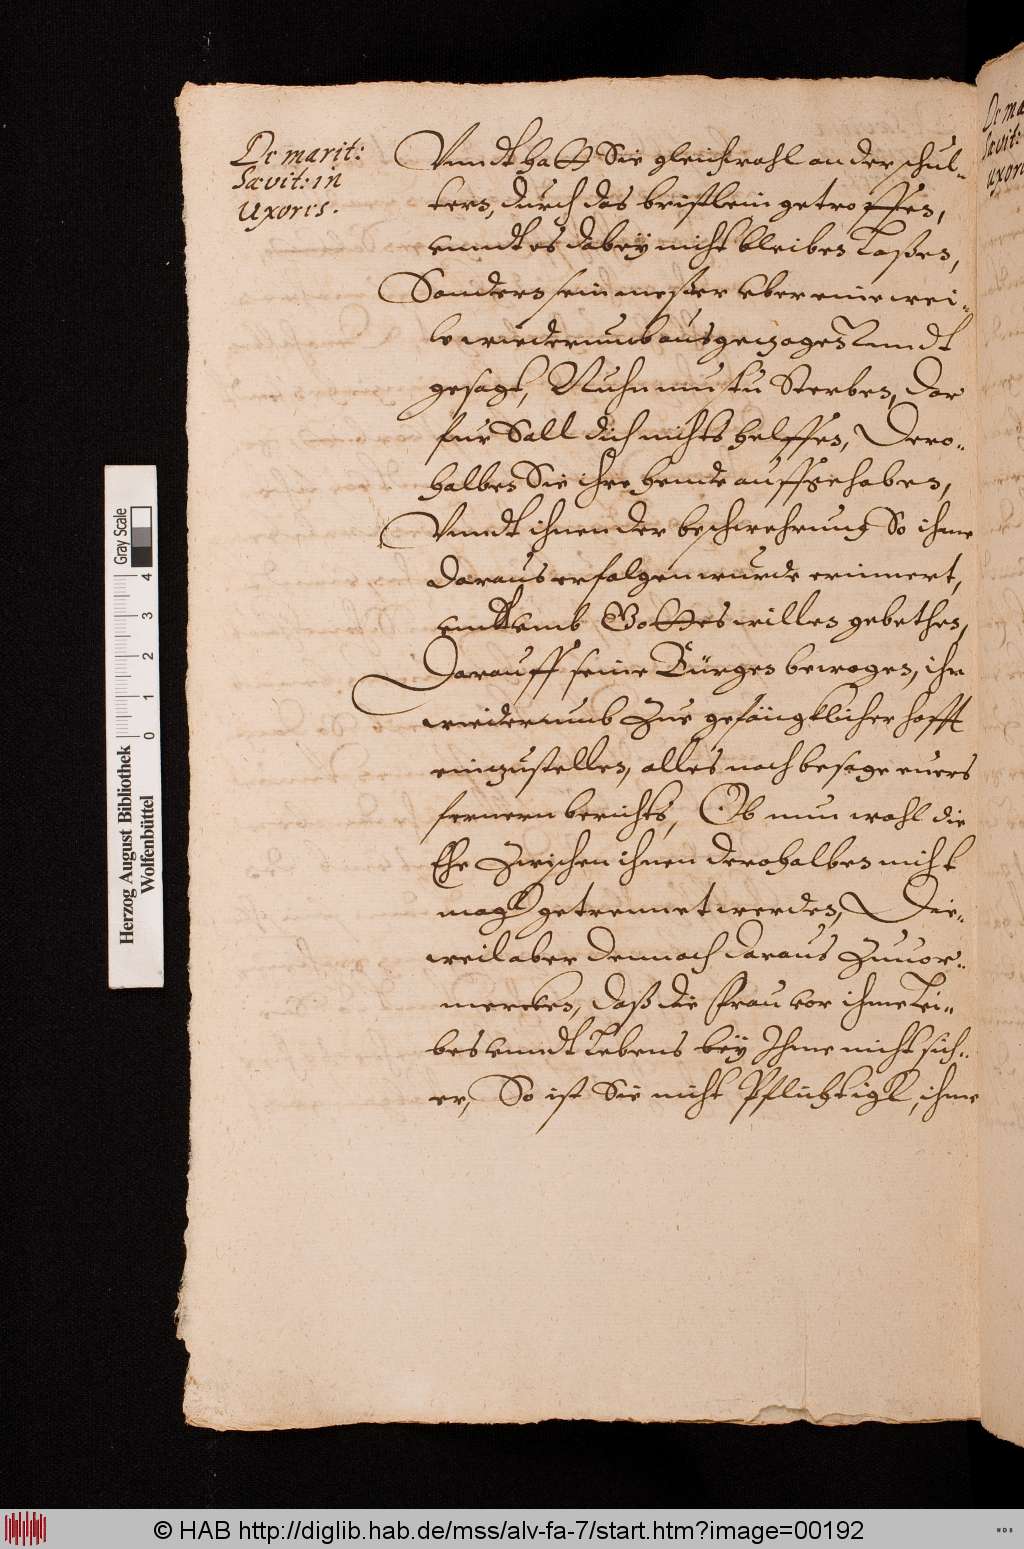 De marit:
Sævit: in
Uxores.
Vnndt hatt Sie gleichwohl an der schul-
tern, durch das bristlein getroffen,
vnndt es dabeÿ nicht bleiben Laßen,
Sondern sein meßer vber eine wei-
le wiederumb ausgezogen Vnndt
gesagt, Nuhn mustu Sterben, dar
fur Soll dich nichts helffen, Dero-
halben Sie ihre hende auffgehaben,
Vnndt ihnen der beschwehrung So ihme
daraus erfolgen wurde erinnert,
vndt vmb Gottes willen gebethen,
Darauff seine Bürgen bewogen, ihn
wiederumb Zue gefängklicher hafft
einzustellen, alles nach besage euers
fernern berichts, Ob nun wohl die
Ehe Zwischen ihnen derohalben nicht
magk getrennet werden, Die-
weil aber dennoch daraus Zuuor-
mercken, daß die Frau vor ihme Lei-
bes vnndt Lebens beÿ Ihme nicht sich-
er, So ist Sie nicht Pflichtigk, ihme
De ma
Sævit:
uxore
Gray Scale
0 1 2 3 4
Herzog August Bibliothek
Wolfenbüttel
© HAB http://diglib.hab.de/mss/alv-fa-7/start.htm?image=00192